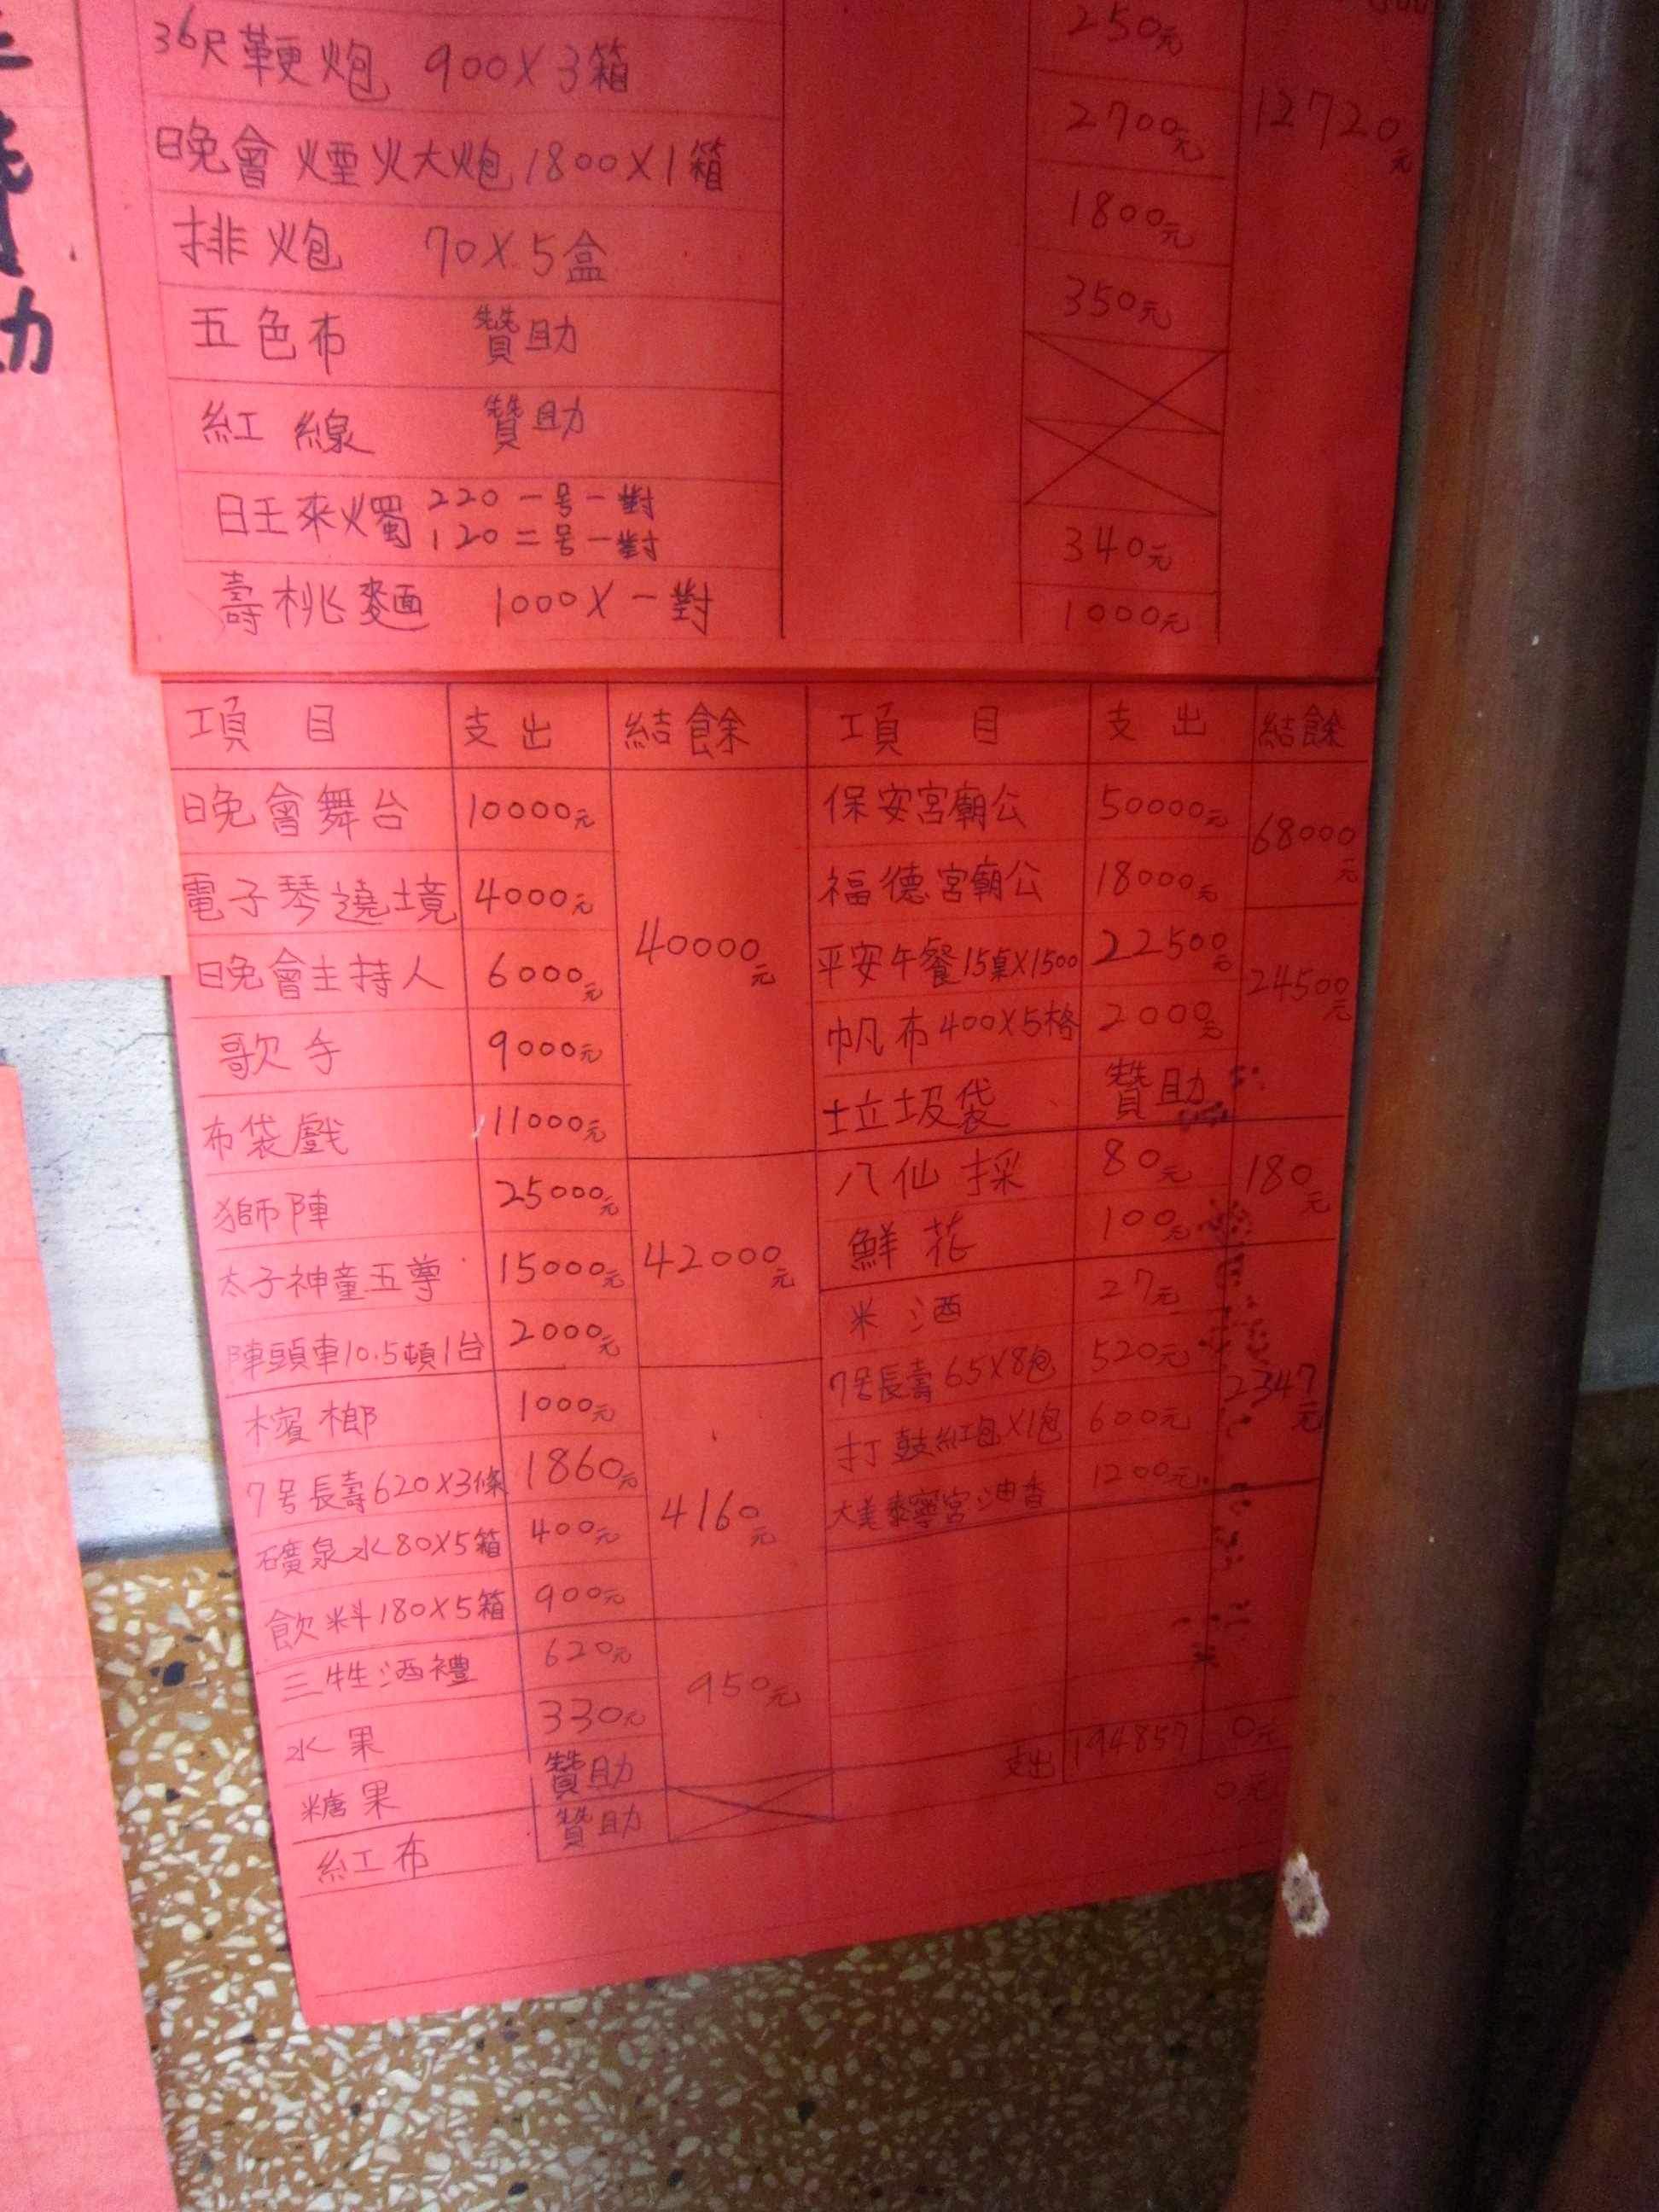 250元
36尺鞭炮 900X3箱 2700元 12720元
晚會煙火大炮1800X1箱 1800元
排炮 70X5盒 350元
五色布 贊助
紅線 贊助
旺來燭 220一号一對
120二号一對 340元
壽桃麵 1000X一對 1000元
項目 支出 結餘 項目 支出 結餘
晚會舞台 10000元 保安宮廟公 50000元 68000元
電子琴遶境 4000元 40000元 福德宮廟公 18000元
晚會主持人 6000元 平安午餐15桌X1500 22500元 24500元
歌手 9000元 帆布400X5格 2000元
布袋戲 11000元 垃圾袋 贊助
獅陣 25000元 42000元 八仙採 80元 180元
太子神童五尊 15000元 鮮花 100元
陣頭車10.5頓1台 2000元 米酒 27元 2347元
檳榔 1000元 4160元 7号長壽65X8包 520元
7号長壽620X3條 1860元 打鼓紅包X1包 600元
礦泉水80X5箱 400元 大美泰寧宮油香 1200元
飲料180X5箱 900元
三牲酒禮 620元 950元
水果 330元
糖果 贊助 支出 194857 0元
紅布 贊助 0元